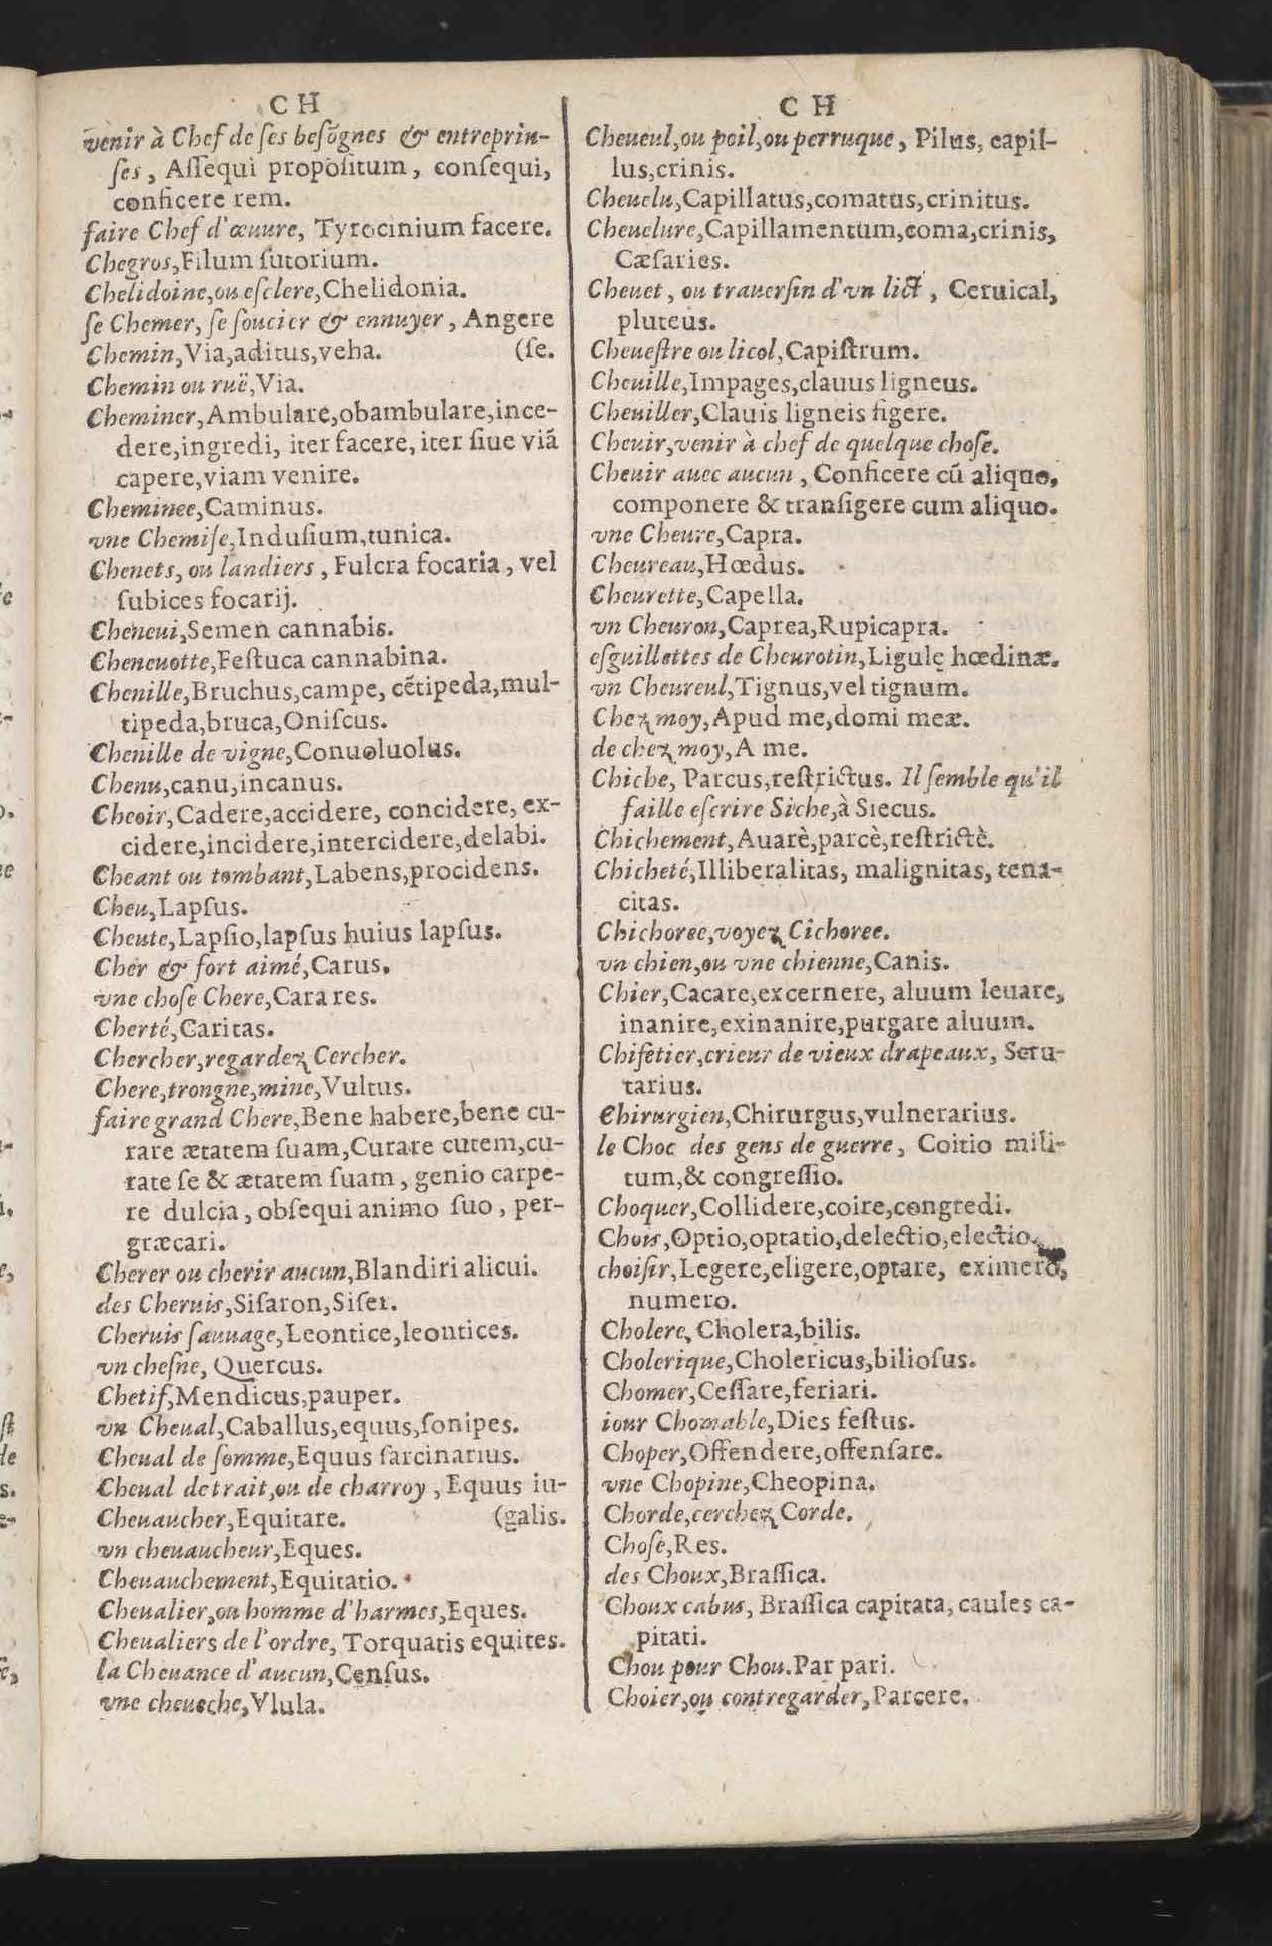 CH
venir à Chef de ses besõgnes & entreprin-
ſes, Aſſequi propoſitum, conſequi,
conficere rem.
faire Chef d'œuure, Tyrocinium facere.
Chegros, Filum ſutorium.
Chelidoine, ou eſclere, Chelidonia.
ſe Chemer, ſe ſoucier & ennuyer, Angere
Chemin, Via, aditus, veha. (ſe.
Chemin ou ruë, Via.
Cheminer, Ambulare, obambulare, ince-
dere, ingredi, iter facere, iter ſiue viã
capere, viam venire.
Cheminee, Caminus.
vne Chemiſe, Induſium, tunica.
Chenets, ou landiers, Fulcra focaria, vel
ſubices focarij.
Cheneui, Semen cannabis.
Cheneuotte, Feſtuca cannabina.
Chenille, Bruchus, campe, cẽtipeda, mul-
tipeda, bruca, Oniſcus.
Chenille de vigne, Conuoluolus.
Chenu, canu, incanus.
Cheoir, Cadere, accidere, concidere, ex-
cidere, incidere, intercidere, delabi.
Cheant ou tombant, Labens, procidens.
Cheu, Lapſus.
Cheute, Lapſio, lapſus huius lapſus.
Cher & fort aimé, Carus.
vne choſe Chere, Cara res.
Cherté, Caritas.
Chercher, regardez Cercher.
Chere, trongne, mine, Vultus.
faire grand Chere, Bene habere, bene cu-
rare ætatem ſuam, Curare cutem, cu-
rate ſe & ætatem ſuam, genio carpe-
re dulcia, obſequi animo ſuo, per-
græcari.
Cherer ou cherir aucun, Blandiri alicui.
des Cheruis, Siſaron, Siſer.
Cheruis ſauuage, Leontice, leontices.
vn cheſne, Quercus.
Chetif, Mendicus, pauper.
vn Cheual, Caballus, equus, ſonipes.
Cheual de ſomme, Equus ſarcinarius.
Cheual de trait, ou de charroy, Equus iu-
Cheuaucher, Equitare. (galis.
vn cheuaucheur, Eques.
Cheuauchement, Equitatio.
Cheualier, ou homme d'harmes, Eques.
Cheualiers de l'ordre, Torquatis equites.
la Cheuance d'aucun, Cenſus.
vne cheueche, Vlula.
CH
Cheueul, ou poil, ou perruque, Pilus, capil-
lus, crinis.
Cheuelu, Capillatus, comatus, crinitus.
Cheuelure, Capillamentum, coma, crinis,
Cæſaries.
Cheuet, ou trauerſin d'vn lict, Ceruical,
pluteus.
Cheueſtre ou licol, Capiſtrum.
Cheuille, Impages, clauus ligneus.
Cheuiller, Clauis ligneis figere.
Cheuir, venir à chef de quelque choſe.
Cheuir auec aucun, Conficere cũ aliquo,
componere & tranſigere cum aliquo.
vne Cheure, Capra.
Cheureau, Hœdus.
Cheurette, Capella.
vn Cheuron, Caprea, Rupicapra.
eſguillettes de Cheurotin, Ligulę hœdinæ.
vn Cheureul, Tignus, vel tignum.
Chez moy, Apud me, domi meæ.
de chez moy, A me.
Chiche, Parcus, reſtrictus. Il ſemble qu'il
faille eſcrire Siche, à Siecus.
Chichement, Auarè, parcè, reſtrictè.
Chicheté, Illiberalitas, malignitas, tena-
citas.
Chichoree, voyez Cichoree.
vn chien, ou vne chienne, Canis.
Chier, Cacare, excernere, aluum leuare,
inanire, exinanire, purgare aluum.
Chifetier, crieur de vieux drapeaux, Scru-
tarius.
Chirurgien, Chirurgus, vulnerarius.
le Choc des gens de guerre, Coitio mili-
tum, & congreſſio.
Choquer, Collidere, coire, congredi.
Chois, Optio, optatio, delectio, electio.
choiſir, Legere, eligere, optare, eximere,
numero.
Cholere, Cholera, bilis.
Cholerique, Cholericus, bilioſus.
Chomer, Ceſſare, feriari.
iour Chomable, Dies feſtus.
Choper, Offendere, offenſare.
vne Chopine, Cheopina.
Chorde, cerchez Corde.
Choſe, Res.
des Choux, Braſſica.
Choux cabus, Braſſica capitata, caules ca-
pitati.
Chou pour Chou. Par pari.
Choier, ou contregarder, Parcere.